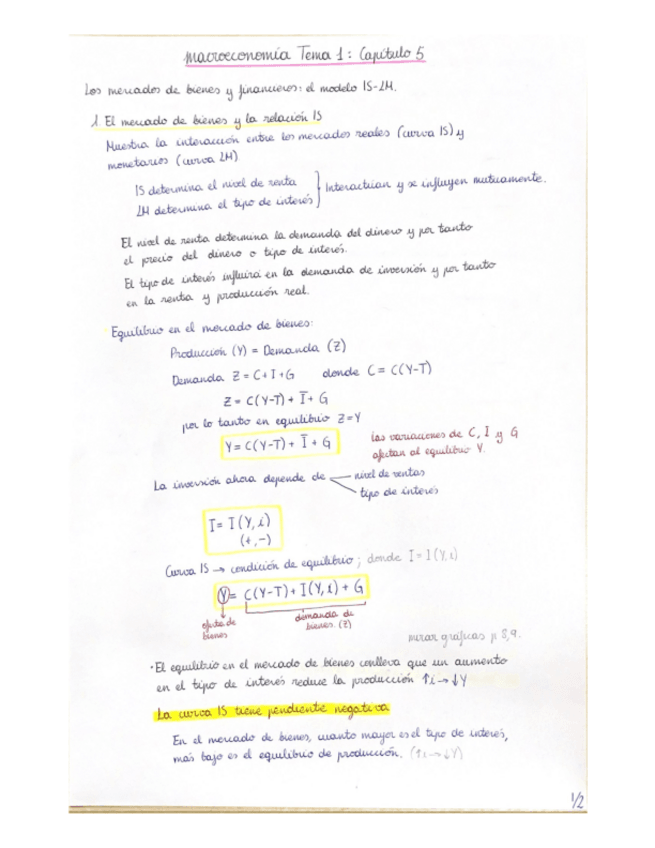 Macroeconomía Tema 1: Capítulo 5
Los mercados de bienes y financieros: el modelo IS-LM.
1. El mercado de bienes y la relación IS
Muestra la interacción entre los mercados reales (curva IS) y
monetarios (curva LM)
IS determina el nivel de renta
LM determina el tipo de interés
Interactúan y se influyen mutuamente.
El nivel de renta determina la demanda del dinero y por tanto
el precio del dinero o tipo de interés.
El tipo de interés influirá en la demanda de inversión y por tanto
en la renta y producción real.
Equilibrio en el mercado de bienes:
Producción (Y) = Demanda (Z)
Demanda Z = C+I+G donde C = C(Y-T)
Z = C(Y-T) + Ī + G
por lo tanto en equilibrio Z=Y
Y = C(Y-T) + Ī + G
las variaciones de C, I y G
afectan al equilibrio Y.
La inversión ahora depende de
nivel de ventas
tipo de interés
I = I(Y, i)
(+, -)
Curva IS → condición de equilibrio; donde I = I(Y, i)
Y = C(Y-T) + I(Y, i) + G
oferta de
bienes
demanda de
bienes. (Z)
mirar gráficas p 8,9.
·El equilibrio en el mercado de bienes conlleva que un aumento
en el tipo de interés reduce la producción ↑i→↓Y
La curva IS tiene pendiente negativa
En el mercado de bienes, cuanto mayor es el tipo de interés,
más bajo es el equilibrio de producción. (↑i→↓Y)
1/2